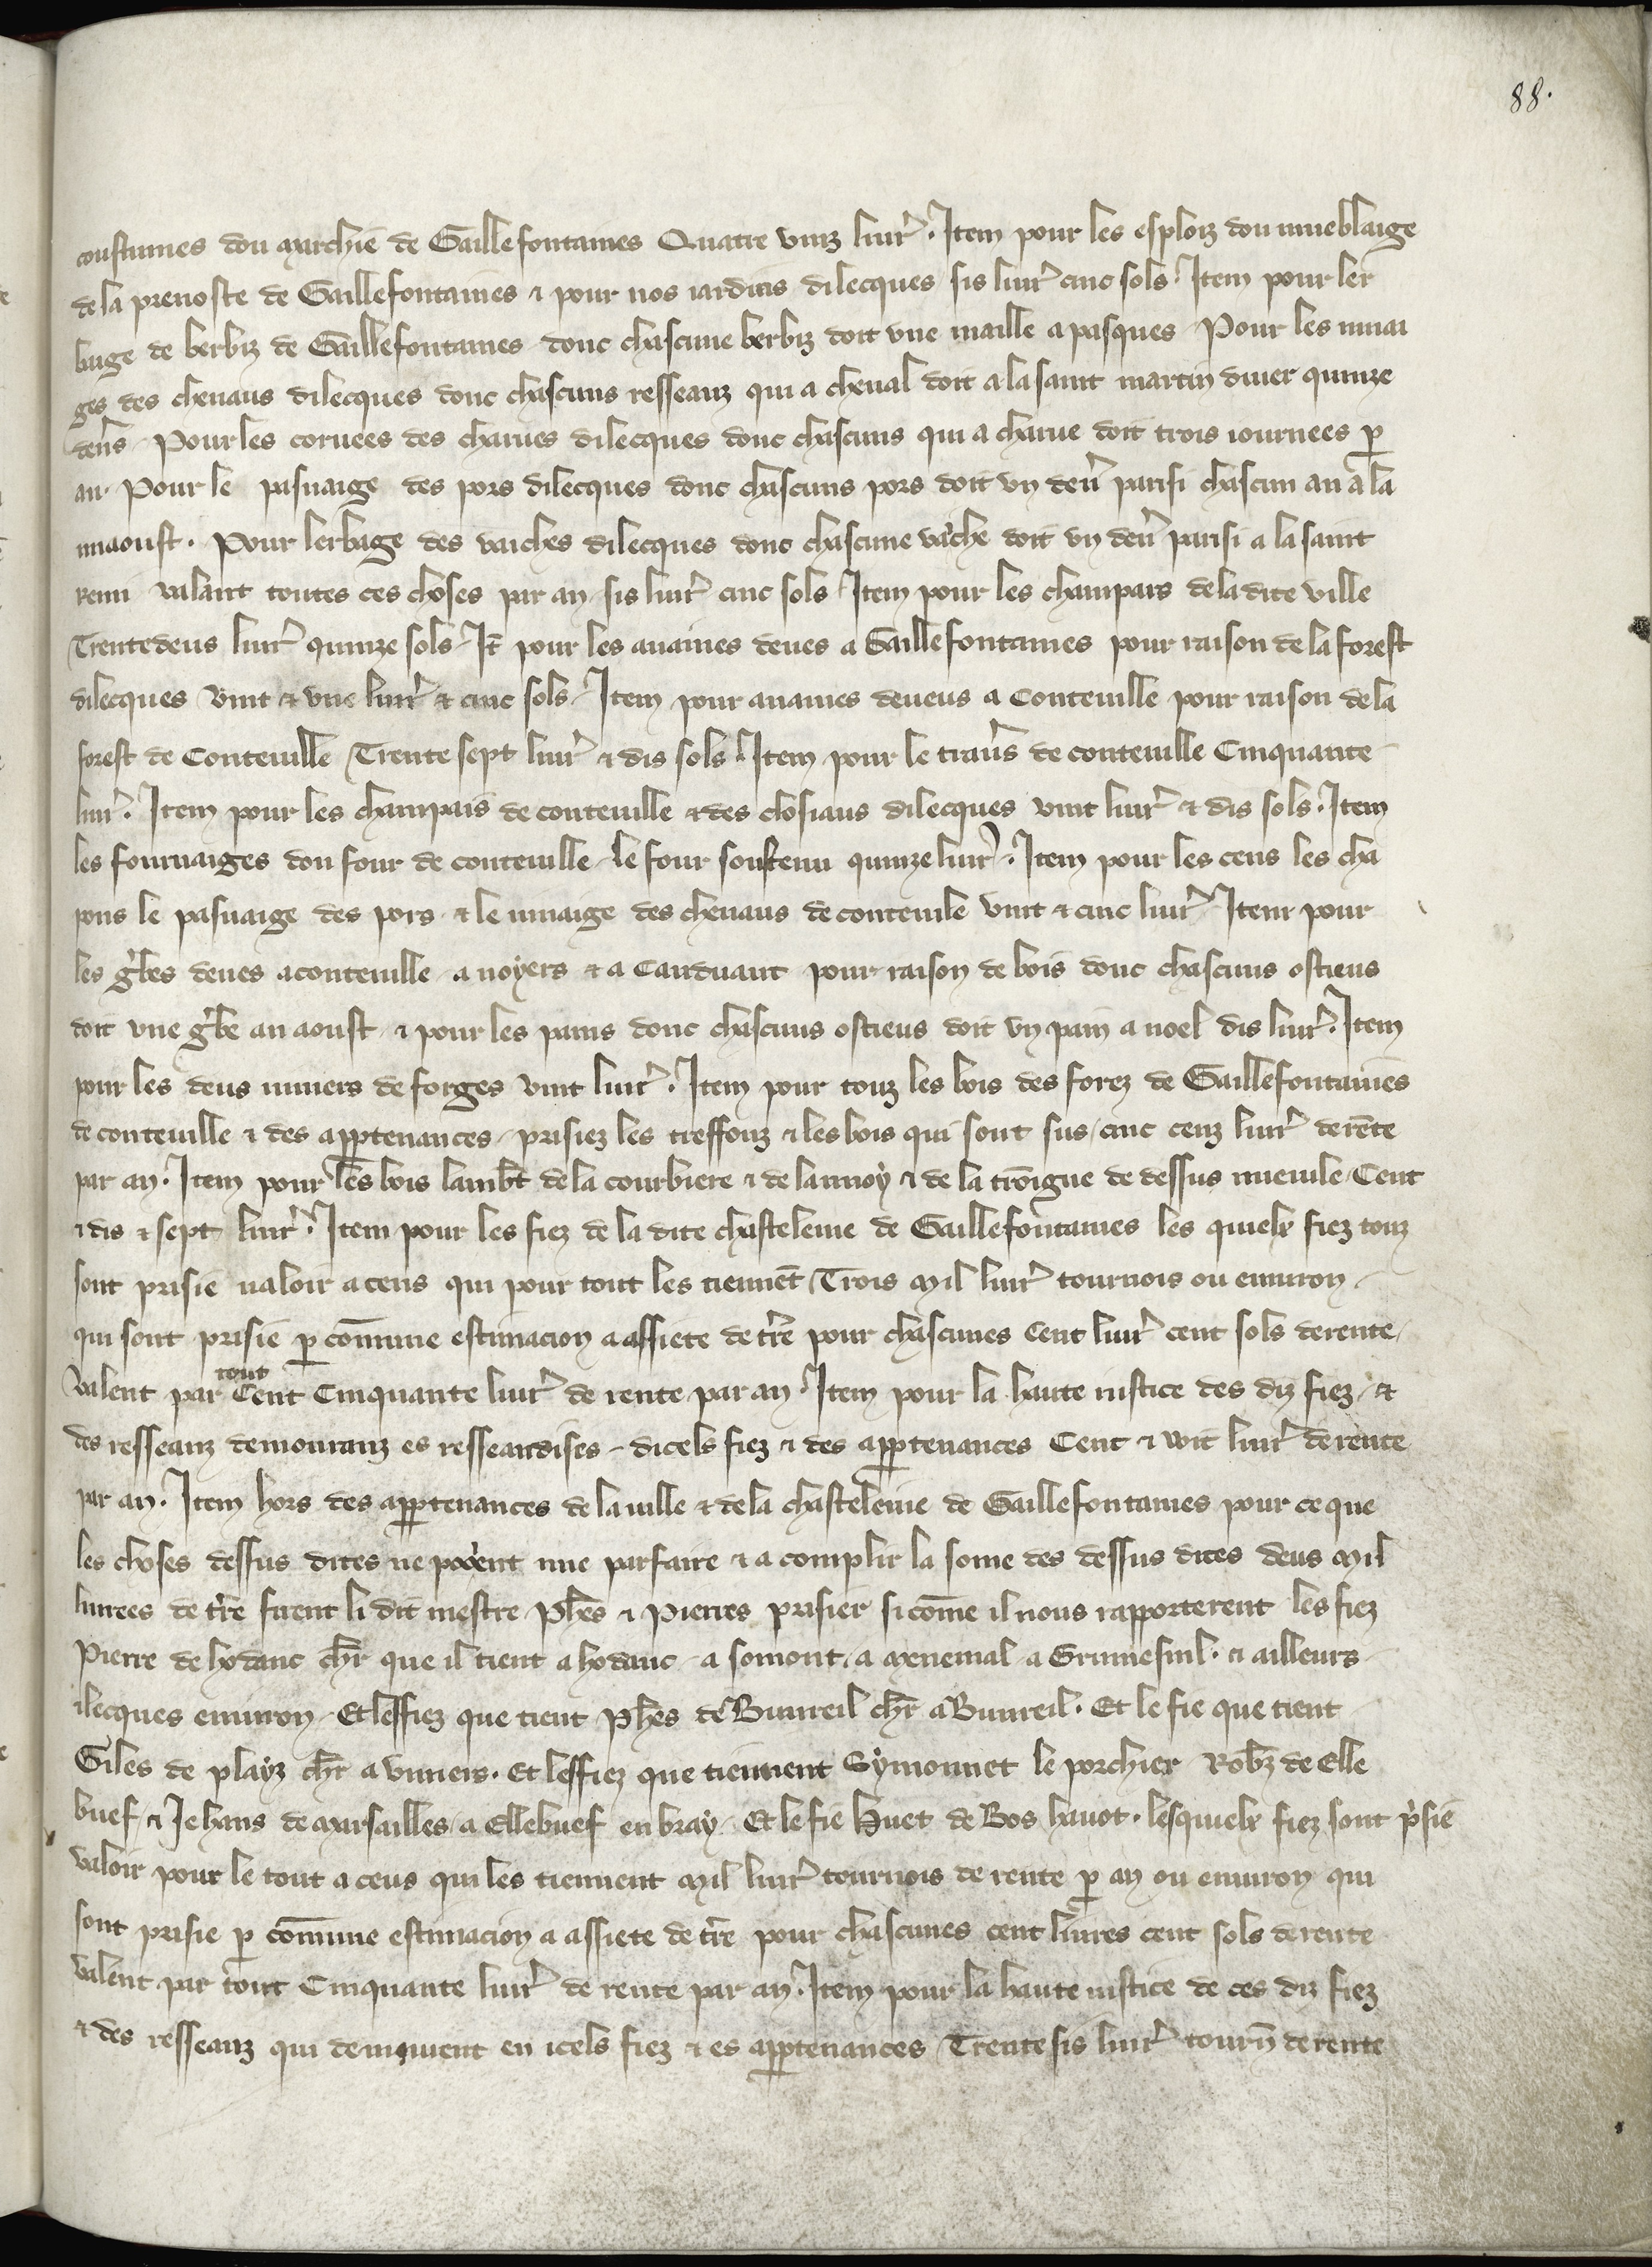 88.
coustumes dou marchie de Gaillefontaines Quatre vinz liur̃. Item pour les esploiz dou mueblaige
de la preuoste de Gaillefontaines & pour nos iardins dilecques sis liur̃ cinc sols. Item pour ler
bage de berbiz de Gaillefontaines donc chascune berbiz doit vne maille a pasques. Pour les
ges des cheuaus dilecques donc chascuns resseanz qui a cheual doit a la saint martin diuer quinze
den̄s. Pour les coruees des charues dilecques donc chascuns qui a charue doit trois iournees ꝑ
an. Pour le pasnaige des pors dilecques donc chascuns pors doit vn den̄ parisi chascun an a la
miaoust. Pour lerbage des vaiches dilecques donc chascune vache doit vn den̄ parisi a la saint
remi valant toutes ces choses par an sis liur̃ cinc sols Item pour les champars de la dite ville
Trente deus liur̃ quinze sols. It̄ pour les auaines deues a Gaillefontaines pour raison de la forest
dilecques vint & vne liur̃ & cinc sols. Item pour auaines deueus a Conteuille pour raison de la
forest de Conteuille Trente sept liur̃ & dis sols. Item pour le trau̕s de conteuille Cinquante
liur̃. Item pour les champars de conteuille & des closiaus dilecques vint liur̃ & dis sols. Item
les fournaiges dou four de conteuille le four soustenu quinze liur̃. Item pour les cens les cha
pons le pasnaige des pors & le minaige des cheuaus de conteuile vint & cinc liur̃ Item pour
les g̕bes deues a conteuille a noyers & a Cauduant pour raison de bois donc chascuns ostieus
doit vne g̕be an aoust & pour les pains donc chascuns ostieus doit vn pain a noel dis liur̃. Item
pour les deus de forges vint liur̃. Item pour touz les bois des forez de Gaillefontaines
de conteuille & des apꝑtenances prisiez les treffonz & les bois qui sont sus cinc cenz liur̃ de rēte
par an. Item pour les bois lamb̄t de la courbiere & de lannoy & de la de dessus nueuile Cent
& dis & sept liur̃. Item pour les fiez de la dite chastelenie de Gaillefontaines les quielx fiez touz
sont prisie ualoir a ceus qui pour tout les tiennēt Trois Mil liur̃ tournois ou enuiron
qui sont prisie ꝑ cōmune estimacion a assiete de t̄re pour chascunes Cent liur̃ cent sols de rente
valent par tout Cent Cinquante liur̃ de rente par an. Item pour la haute iustice des diz fiez &
des resseanz demouranz es resseandises dicels fiez & des apꝑtenances Cent & wit liur̃ de rente
par an. Item hors des apꝑtenances de la uille & de la chastelenie de Gaillefontaines pour ce que
les choses dessus dites ne pooent mie parfaire & a complir la some des dessus dites deus Mil
liurees de t̄re firent li dit mestre Ph̄es & Pierres prisier si cōme il nous rapporterent les fiez
Pierre de hodanc ch̄r que il tient a hodanc a somont a a Grumesnil. & ailleurs
ilecques enuiron. Et leffiez que tient Ph̄es de Buureil ch̄r a Buureil. Et le fie que tient
Giles de playz ch̄r a vuueis. Et leffiez que tiennent Symonnet le porchier Rob̄z de Elle
buef & Jehans de Marsailles a Ellebuef en bray. Et le fie Huet de Bos hauot. lesquielx fiez sont p̕sie
valoir pour le tout a ceus qui les tiennent Mil liur̃ tournois de rente ꝑ an ou enuiron qui
sont prisie ꝑ cōmune estimacion a assiete de t̄re pour chascunes cent liures cent sols de rente
valent par tout Cinquante liur̃ de rente par an. Item pour la haute iustice de ces diz fiez
& des resseanz qui demeurent en icels fiez & es apꝑtenances Trente sis liur̃ tourn̄ de rente